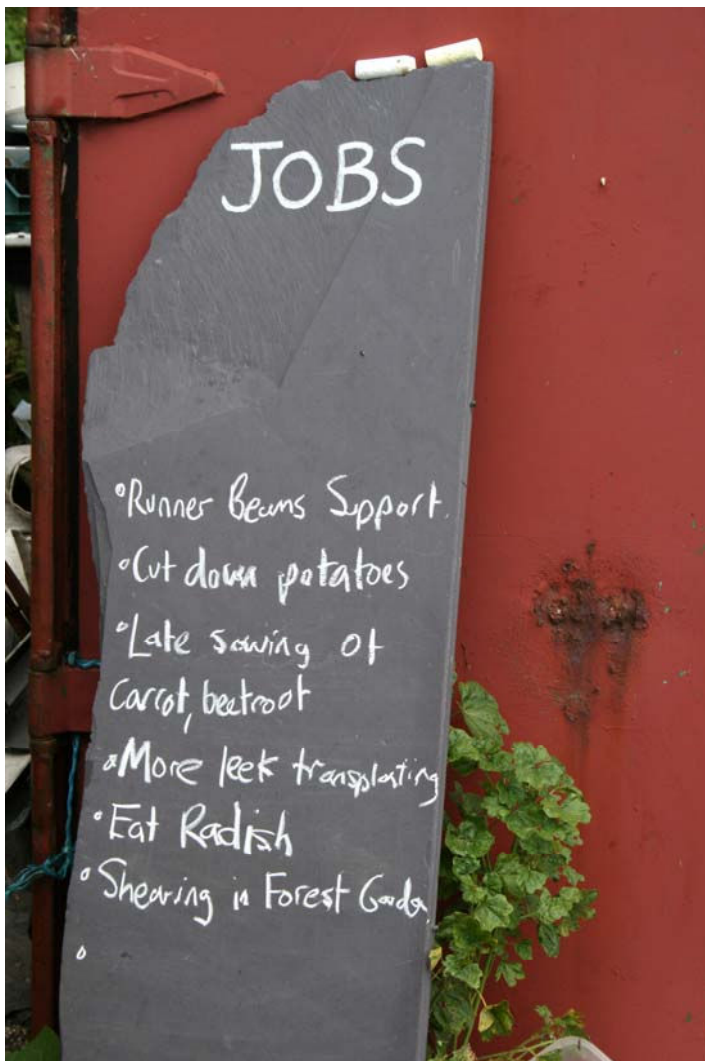 JOBS
°Runner Beans Support.
°Cut down potatoes
°Late sowing of
Carrot, beetroot
°More leek transplanting
°Eat Radish
°Shearing in Forest Garden
°